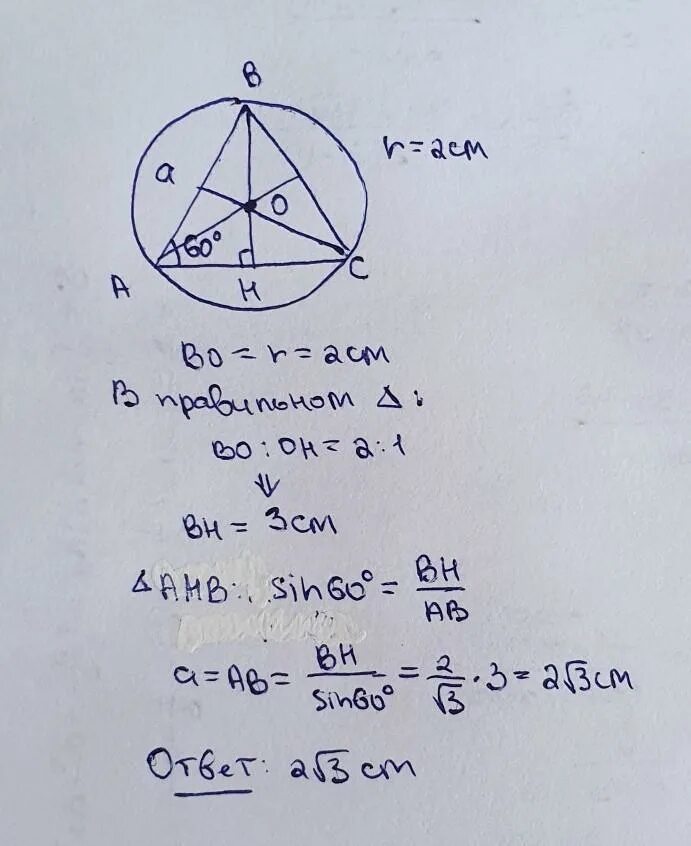 B
a
r = 2см
O
60°
A
H
C
BO = r = 2см
В правильном Δ:
BO : OH = 2 : 1
⇓
BH = 3см
Δ AHB: sin60° = BH/AB
a = AB = BH/sin60° = 2/√3 · 3 = 2√3 см
Ответ: 2√3 см